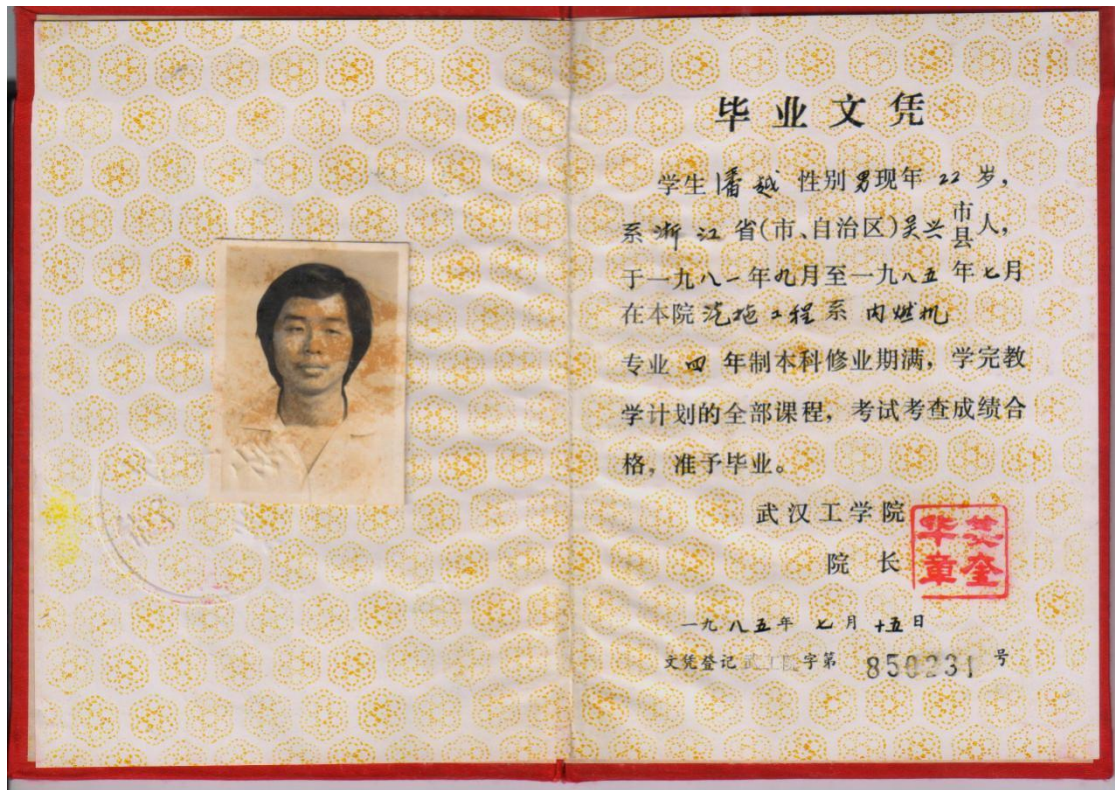 毕业文凭
学生潘越性别男现年22岁，
系浙江省(市、自治区)吴兴市县人，
于一九八一年九月至一九八五年七月
在本院汽拖工程系内燃机
专业四年制本科修业期满，学完教
学计划的全部课程，考试考查成绩合
格，准予毕业。
武汉工学院
院长
华英
章奎
一九八五年七月十五日
文凭登记武工院字第850231号